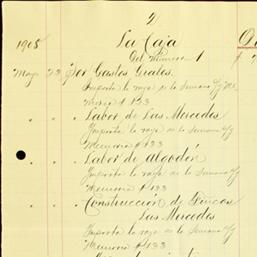 2)
1905 La Caja
Del Número 1 $
Mayo 23 Por Gastos Grales.
Importa la raya de la semana
Memoria # 133
" " " Labor de Las Mercedes
Importa la raya de la semana
Memoria # 133
" " " Labor de algodón
Importa la raya de la semana
Memoria # 133
" " " Construccion de Fincas
Las Mercedes
Importa la raya de la semana
Memoria # 133